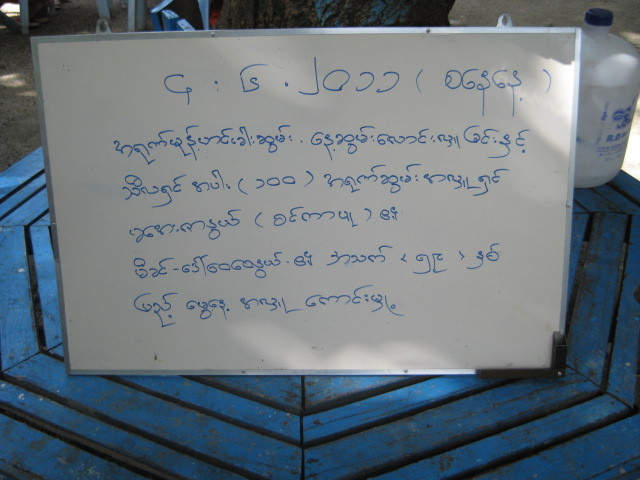 ၄ . ၆ . ၂၀၁၁ ( စနေနေ့ )
အရုဏ်မုန့်ဟင်းခါးဆွမ်း . နေ့ဆွမ်းလောင်းလှူခြင်းနှင့်
သီလရှင် အပါး ( ၁၀၀ ) အရုဏ်ဆွမ်းအလှူရှင်
( စင်ကာပူ ) ၏
မိခင် - ဒေါ်ထွေးနွယ် ၏ အသက် < ၅၉ > နှစ်
ပြည့် မွေးနေ့ အလှူ ကောင်းမှု့